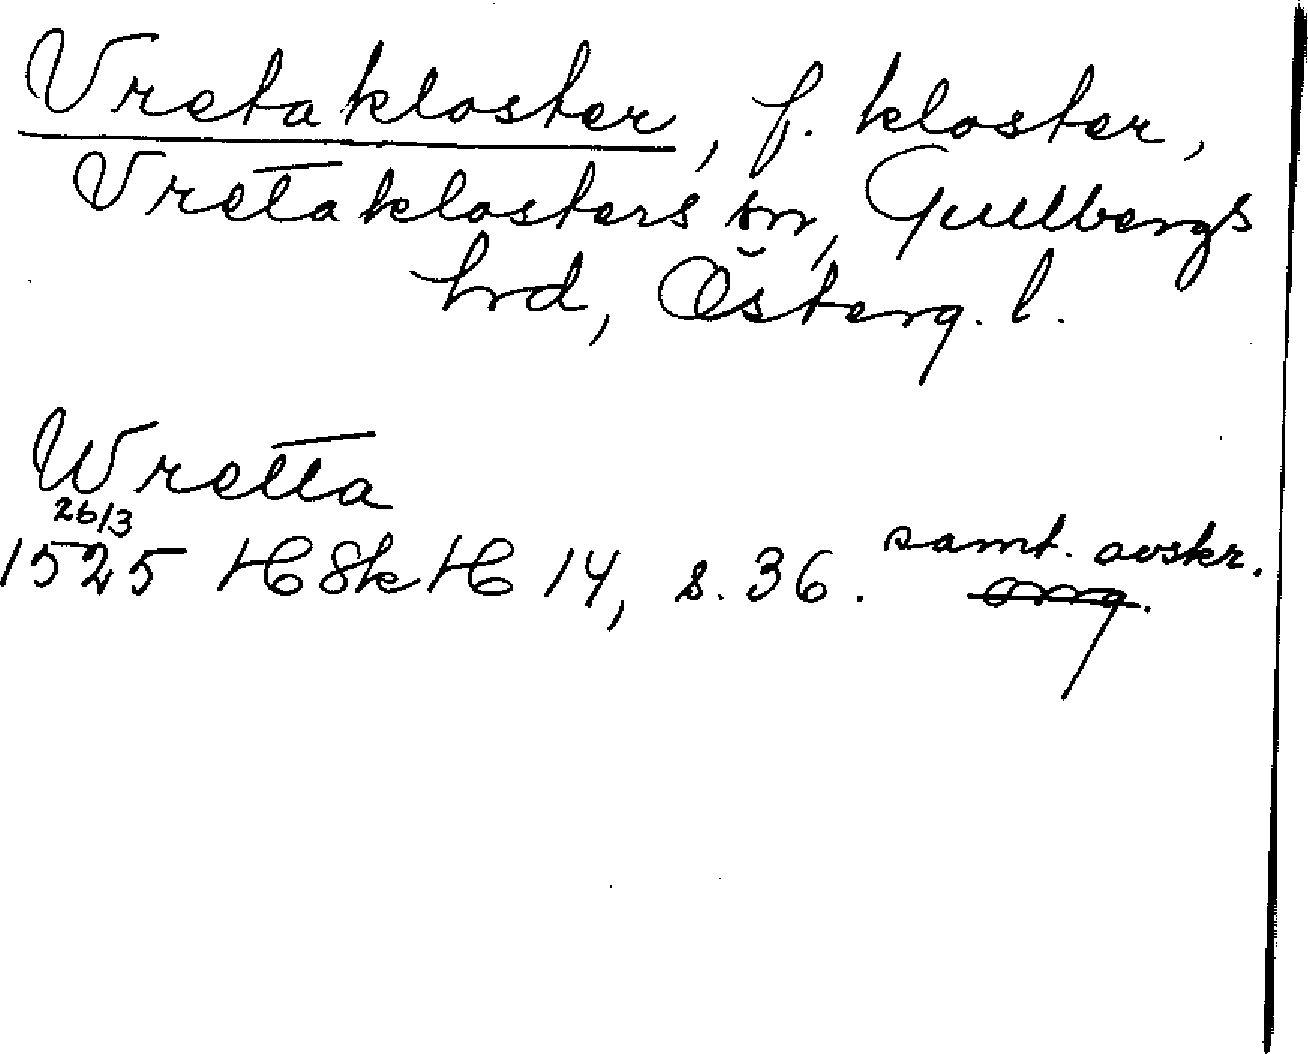 Vreta kloster, f. kloster,
Vreta klosters sn, Gullbergs
hrd, Österg. l.
Wretta
26/3
1525 HSkH 14, s. 36. samt. avskr.